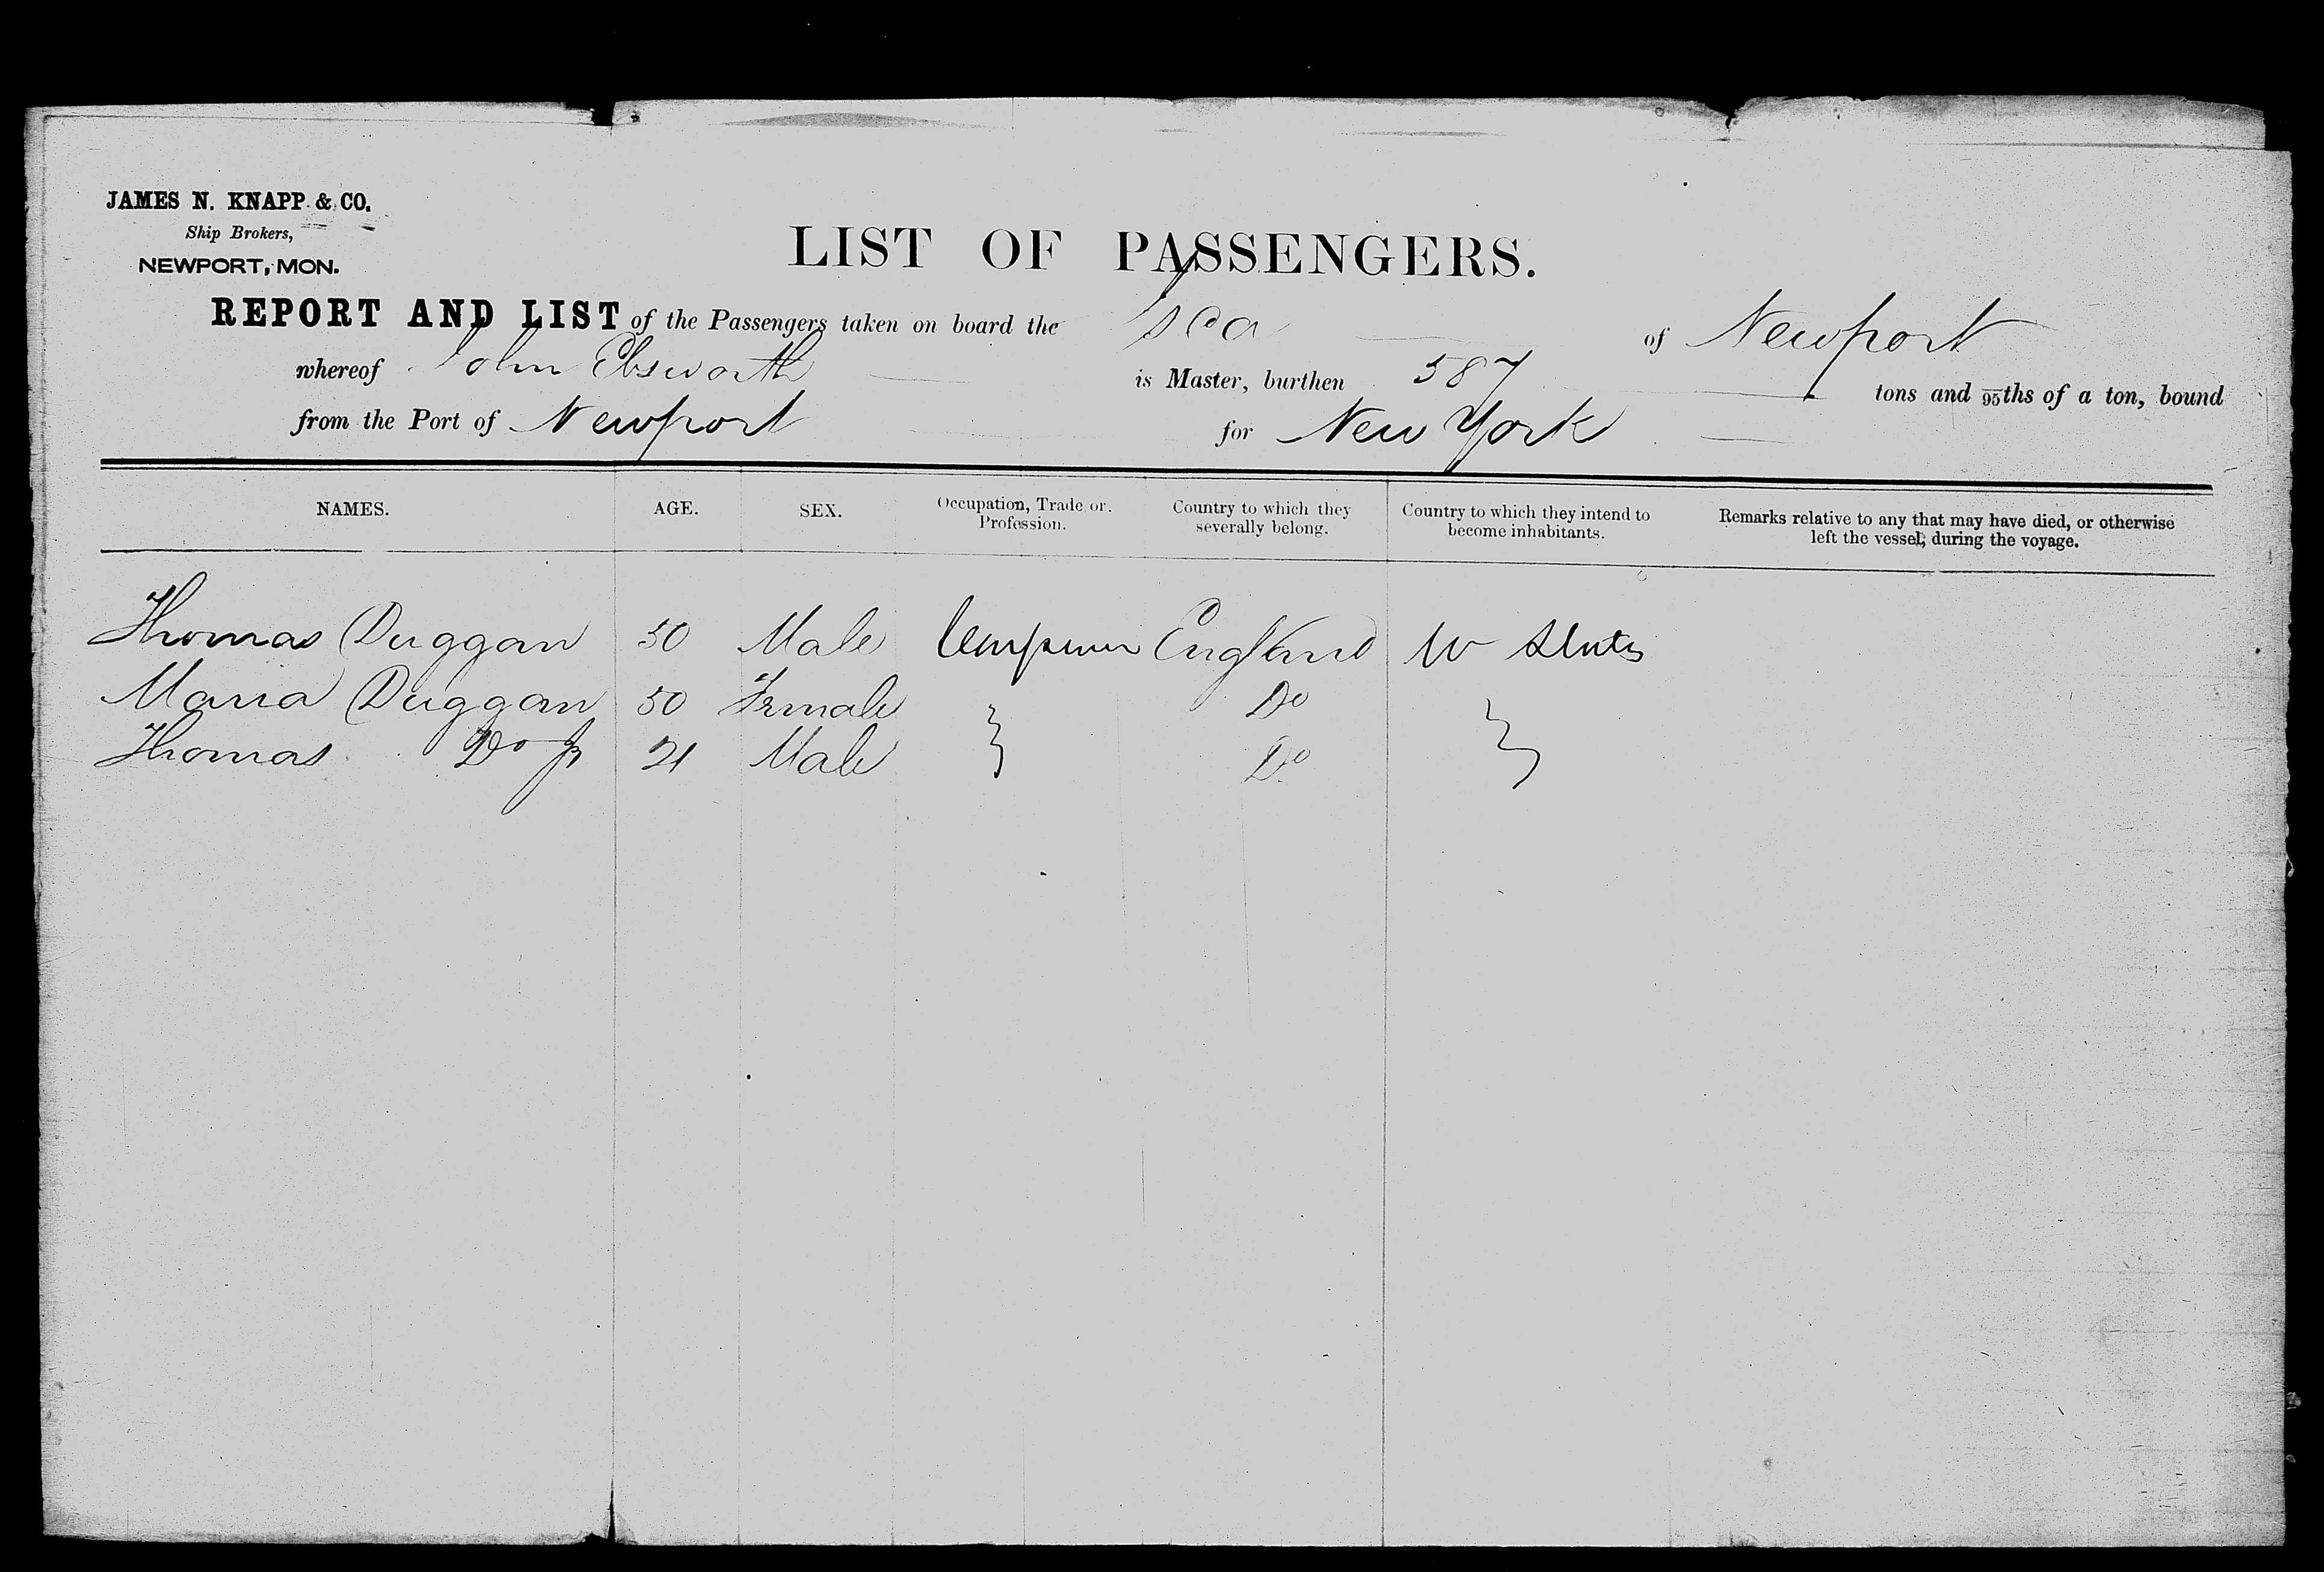 JAMES N. KNAPP & CO.
Ship Brokers,
NEWPORT, MON.
LIST OF PASSENGERS.
REPORT AND LIST of the Passengers taken on board the Isca of Newport
whereof John Ebsworth is Master, burthen 587 tons and 95ths of a ton, bound
from the Port of Newport for New York
NAMES. AGE. SEX. Occupation, Trade or Profession. Country to which they severally belong. Country to which they intend to become inhabitants. Remarks relative to any that may have died, or otherwise left the vessel, during the voyage.
Thomas Duggan 50 Male England
Maria Duggan 50 Female Do
Thomas Do Jr 21 Male Do